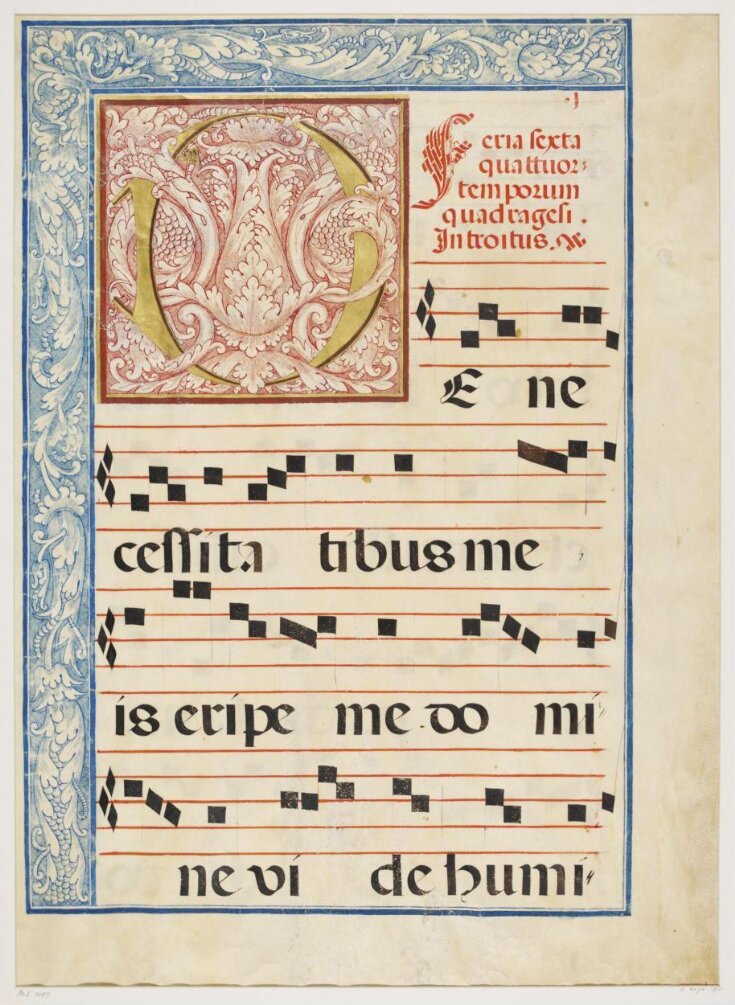 Feria sexta
quattuor
temporum
quadragesi.
Introitus.
DE ne
cessita tibus me
is eripe me do mi
ne vi de humi